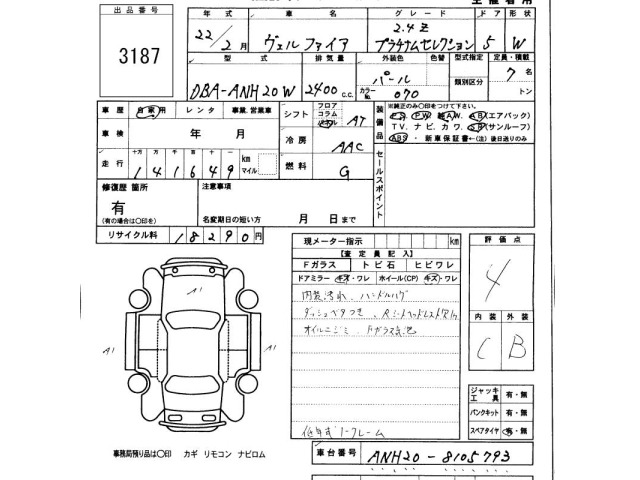 出品番号
3187
年式 車名 グレード ドア 形状
22年 2月 ヴェルファイア 2.4 Z プラチナムセレクション 5 W
型式 排気量 外装色 色替 型式指定 定員・積載
DBA-ANH20W 2400 c.c. パール 類別区分 7名
カラーNo. 070 トン
車歴 自家用 レンタ 事業、営業車
シフト フロア コラム AT
装備品 ※純正のみ○印をつけて下さい。
PS PW AW AB(エアバック)
TV、ナビ、カワ、SR(サンルーフ)
ABS・新車保証書←(注)後日送りのみ
車検 年 月
冷房 AAC
走行 十万 万 千 百 十 一 km マイル
141649
燃料 G
セールスポイント
修復歴 箇所
有
(有の場合は○印を)
注意事項
名変期日の短い方 月 日まで
リサイクル料 18290円
現メーター指示 km
【査定員記入】
Fガラス トビ石 ヒビワレ
ドアミラー キズ・ワレ ホイール(CP) キズ・ワレ
内装汚れ、ハンドルハゲ
オイルニジミ
評価点
4
内装 外装
C B
A1
A1 A1
ジャッキ工具 有・無
パンクキット 有・無
スペアタイヤ 有・無
事務局預り品は○印 カギ リモコン ナビロム
車台番号 ANH20-8105793